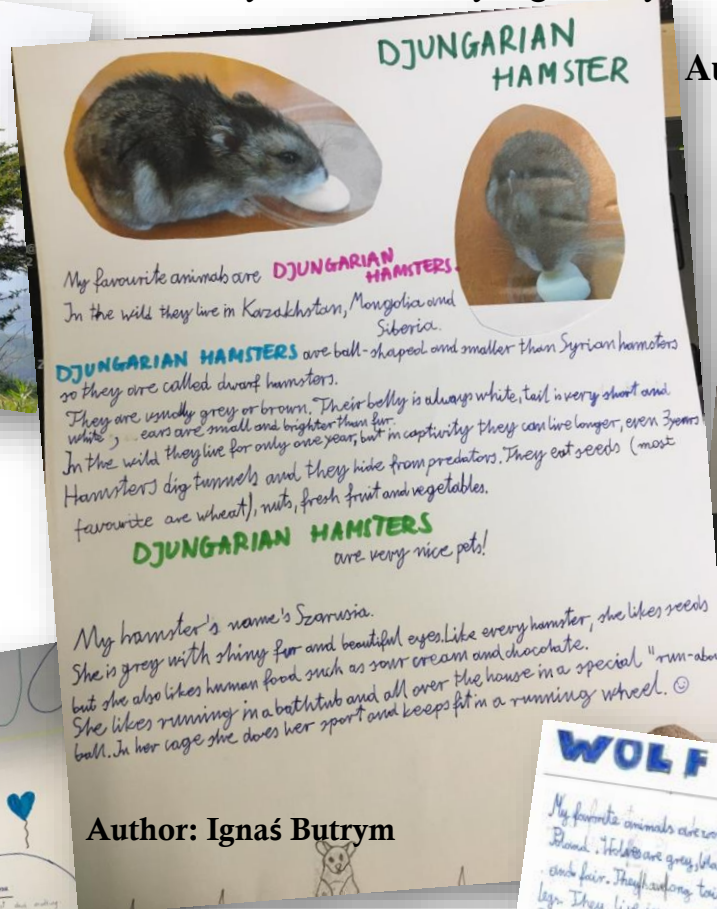 DJUNGARIAN
HAMSTER
My favourite animals are DJUNGARIAN
HAMSTERS.
In the wild they live in Kazakhstan, Mongolia and
Siberia.
DJUNGARIAN HAMSTERS are ball-shaped and smaller than Syrian hamsters
so they are called dwarf hamsters.
They are usually grey or brown. Their belly is always white, tail is very short and
white, ears are small and brighter than fur.
In the wild they live for only one year, but in captivity they can live longer, even 3 years
Hamsters dig tunnels and they hide from predators. They eat seeds (most
favourite are wheat), nuts, fresh fruit and vegetables.
DJUNGARIAN HAMSTERS
are very nice pets!
My hamster's name's Szarusia.
She is grey with shiny fur and beautiful eyes. Like every hamster, she likes seeds
but she also likes human food such as sour cream and chocolate.
She likes running in a bathtub and all over the house in a special "run-abou
ball. In her cage she does her sport and keeps fit in a running wheel. ☺
Author: Ignaś Butrym
WOLF
My favorite animals are
Poland. Wolves are grey,
and fair. They have long
legs. They